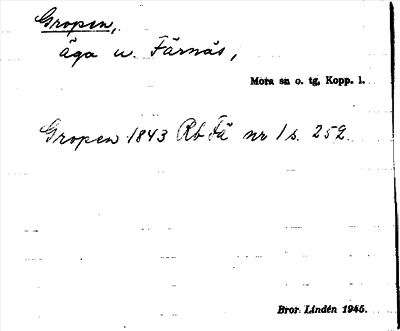 Gropen,
äga u. Färnäs,
Mora sn o. tg, Kopp. l.
Gropen 1843 Rb Fä nr 1 s. 252
Bror Lindén 1945.